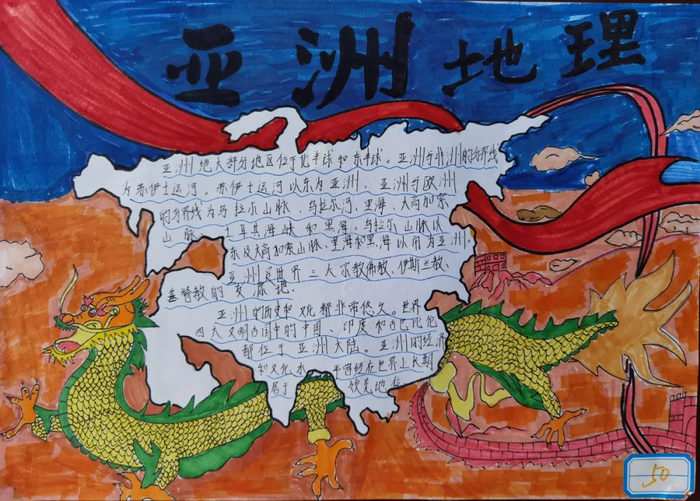 亚洲地理
亚洲绝大部分地区位于北半球和东半球。亚洲与非洲的分界线
为苏伊士运河。苏伊士运河以东为亚洲。亚洲与欧洲
的分界线为乌拉尔山脉、乌拉尔河、里海、大高加索
山脉、土耳其海峡和黑海。乌拉尔山脉以
东及大高加索山脉、里海和黑海以南为亚洲。
亚洲是世界三大宗教佛教、伊斯兰教、
基督教的发源地。
亚洲的历史和文化都非常悠久。世界
四大文明古国中的中国、印度和古巴比伦
都位于亚洲大陆。亚洲的经济
和文化水平曾经在世界上长期
居于
50